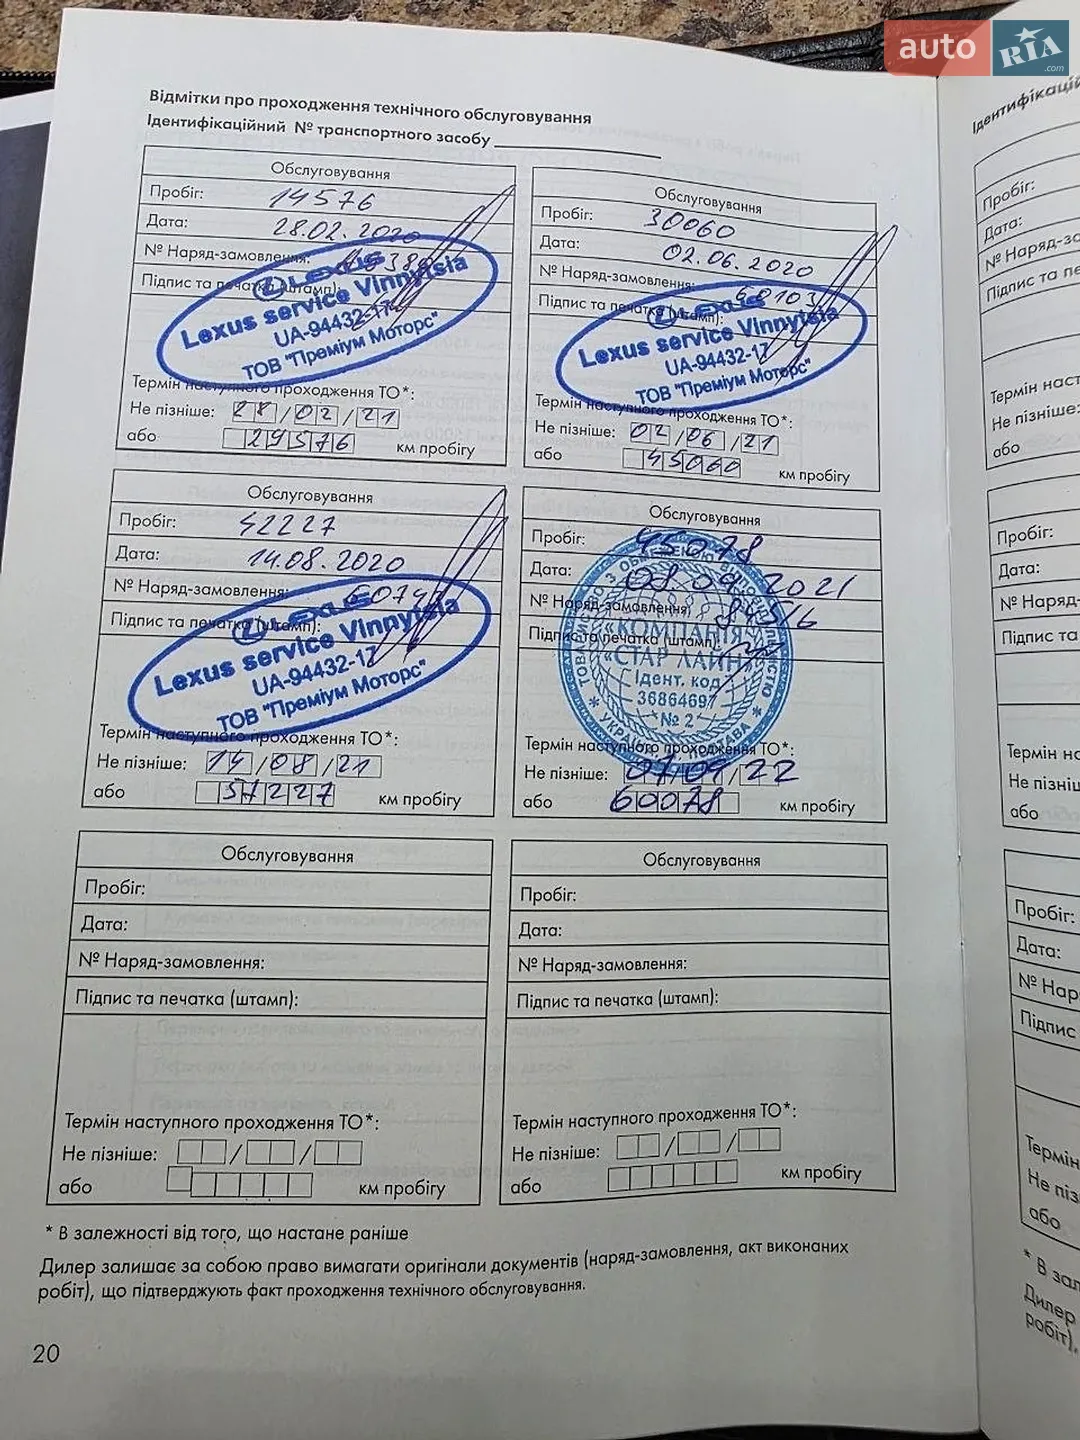 auto RIA.com
Відмітки про проходження технічного обслуговування
Ідентифікаційний № транспортного засобу
Обслуговування
Пробіг: 14576
Дата: 28.02.2020
№ Наряд-замовлення:
Підпис та печатка (штамп):
LEXUS
Lexus service Vinnytsia
UA-94432-17
ТОВ "Преміум Моторс"
Термін наступного проходження ТО*:
Не пізніше: 28/02/21
або 29576 км пробігу
Обслуговування
Пробіг: 30060
Дата: 02.06.2020
№ Наряд-замовлення: 58103
Підпис та печатка (штамп):
LEXUS
Lexus service Vinnytsia
UA-94432-17
ТОВ "Преміум Моторс"
Термін наступного проходження ТО*:
Не пізніше: 02/06/21
або 45060 км пробігу
Обслуговування
Пробіг: 42227
Дата: 14.08.2020
№ Наряд-замовлення:
Підпис та печатка (штамп):
LEXUS
Lexus service Vinnytsia
UA-94432-17
ТОВ "Преміум Моторс"
Термін наступного проходження ТО*:
Не пізніше: 14/08/21
або 57227 км пробігу
Обслуговування
Пробіг: 45078
Дата: 08.09.2021
№ Наряд-замовлення:
Підпис та печатка (штамп):
«КОМПАНІЯ
«СТАР ЛАЙН»
Ідент. код
36864697
* № 2 *
Термін наступного проходження ТО*:
Не пізніше: 07/09/22
або 60078 км пробігу
Обслуговування
Пробіг:
Дата:
№ Наряд-замовлення:
Підпис та печатка (штамп):
Термін наступного проходження ТО*:
Не пізніше: / /
або км пробігу
Обслуговування
Пробіг:
Дата:
№ Наряд-замовлення:
Підпис та печатка (штамп):
Термін наступного проходження ТО*:
Не пізніше: / /
або км пробігу
* В залежності від того, що настане раніше
Дилер залишає за собою право вимагати оригінали документів (наряд-замовлення, акт виконаних
робіт), що підтверджують факт проходження технічного обслуговування.
20
Пробіг:
Дата:
Не пізніше:
або
Пробіг:
Дата:
або
Пробіг:
Дата:
Підпис
або
Дилер
робіт),